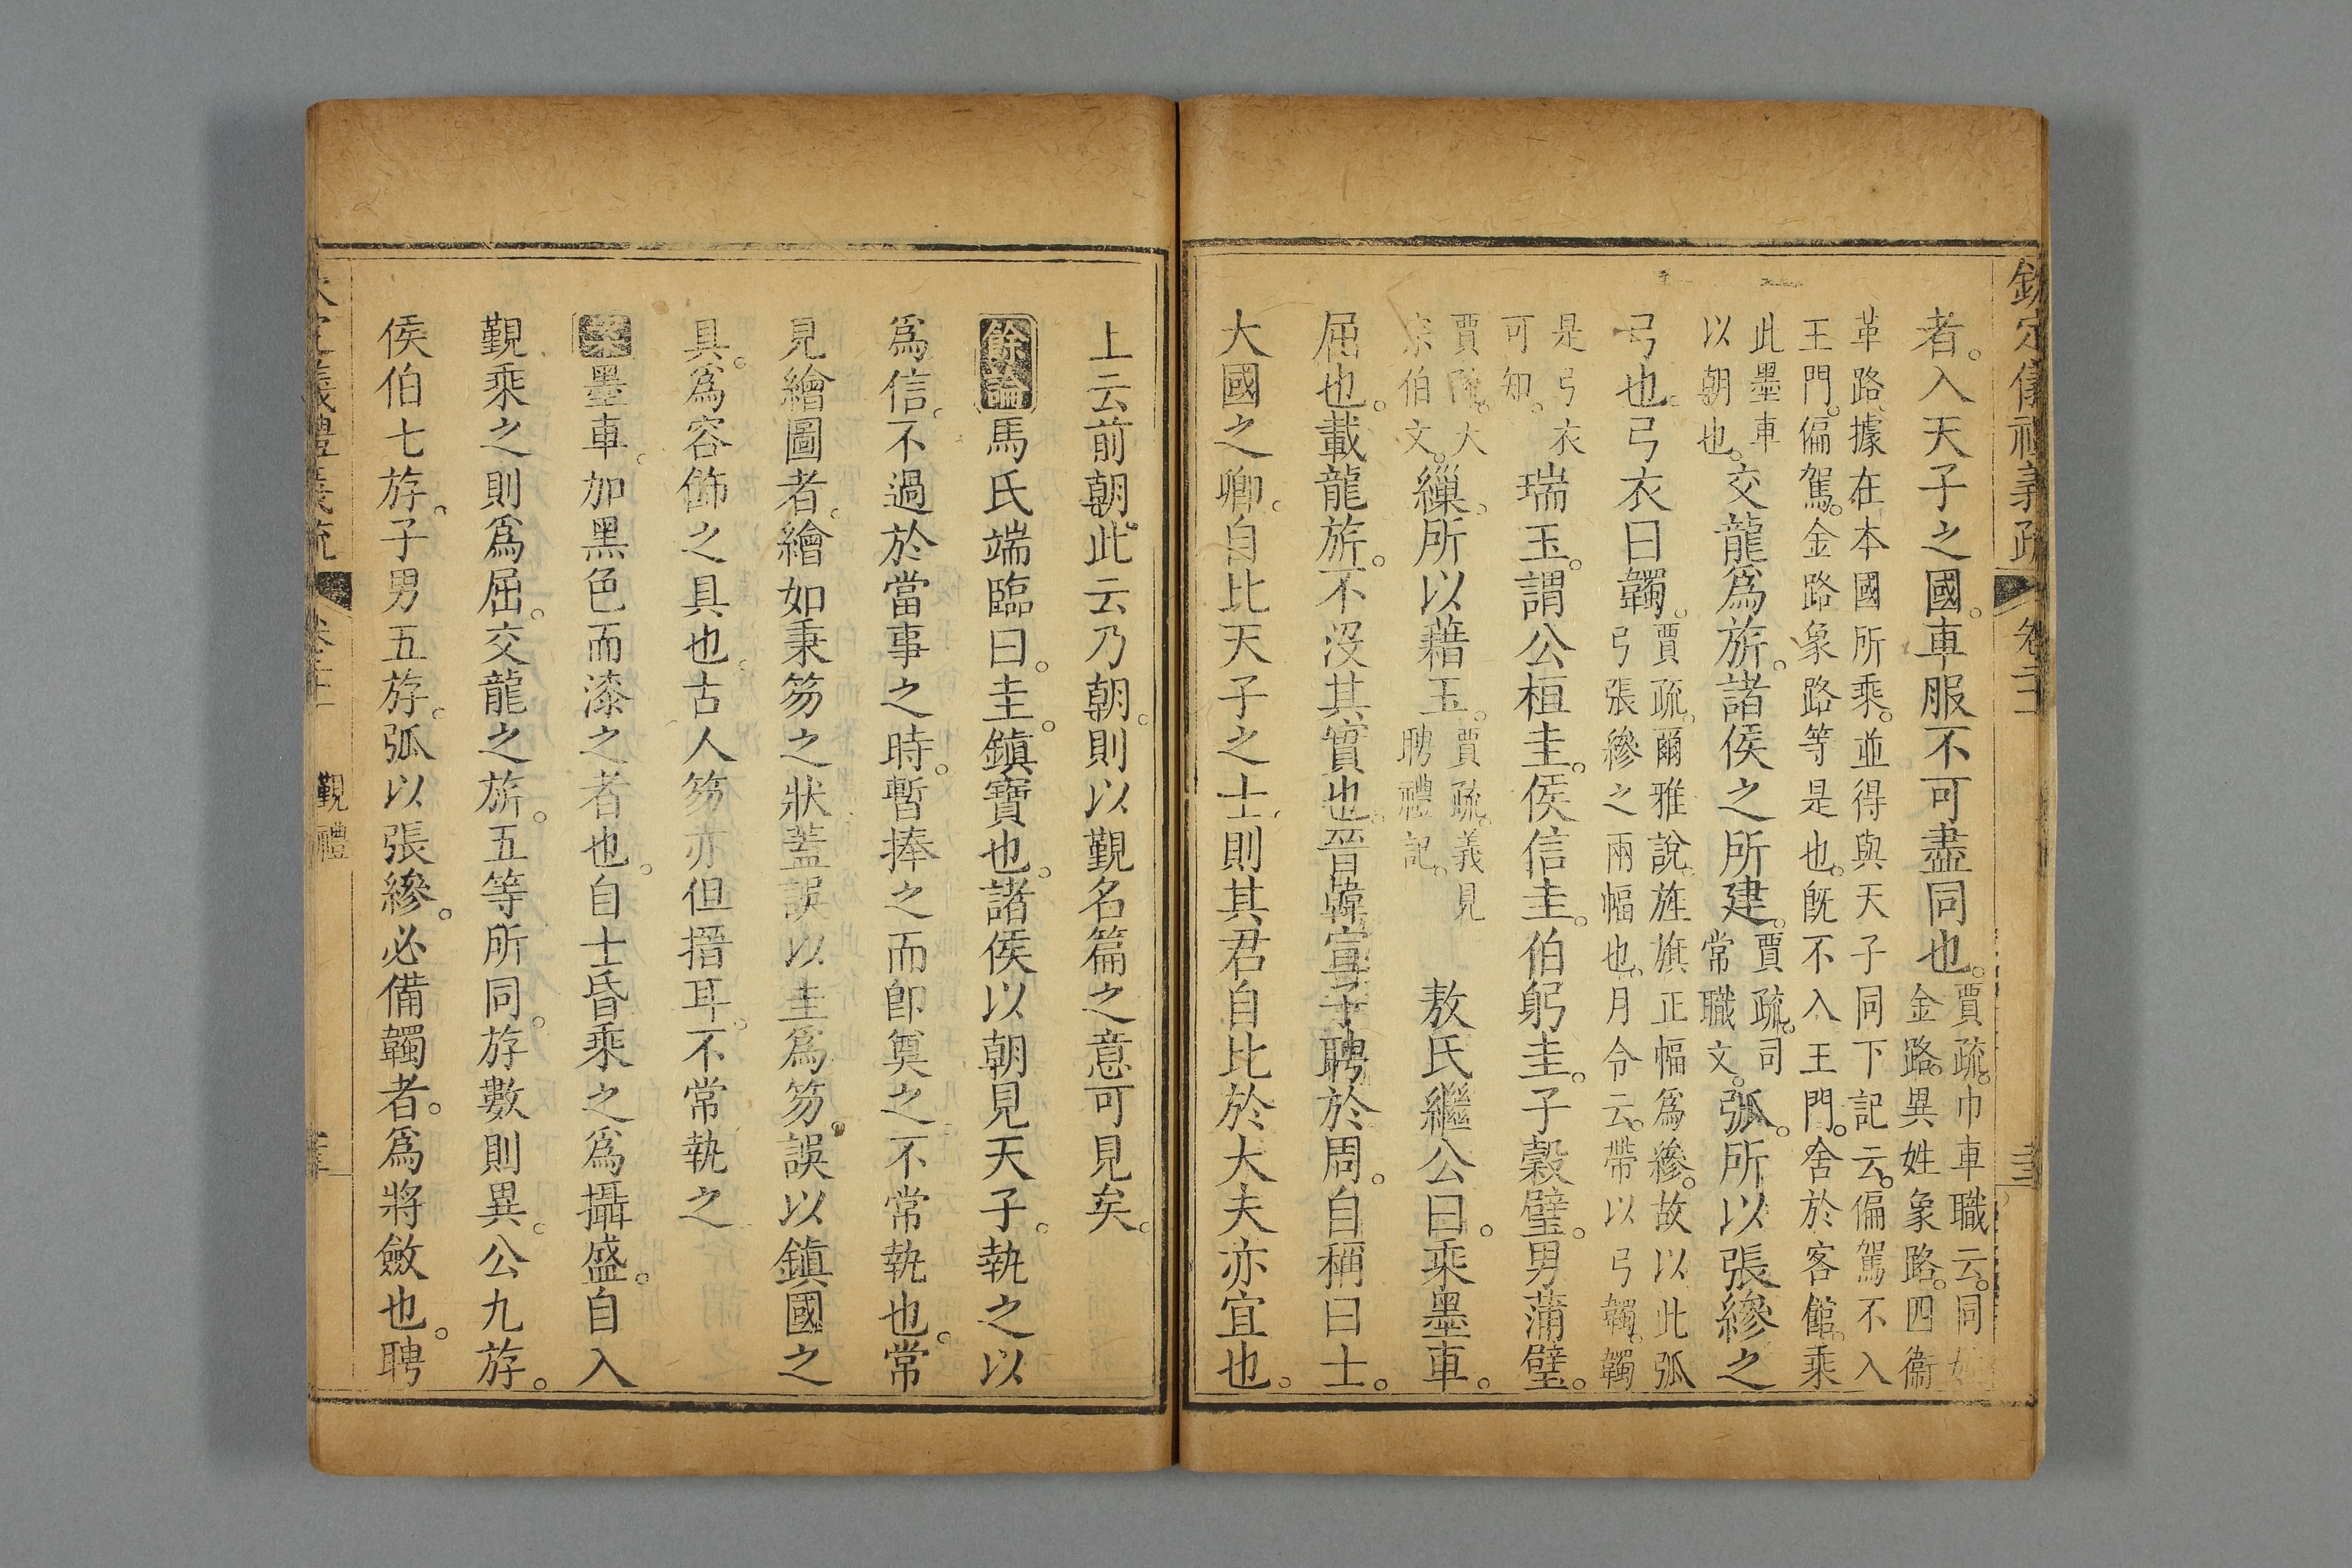 欽定儀禮義疏 卷二
者。入天子之國。車服不可盡同也。賈疏。巾車職云。同姓
金路。異姓象路。四衞
革路。據在本國所乘。並得與天子同下記云。偏駕不入
王門。偏駕。金路象路等是也。旣不入王門。舍於客館。乘
此墨車
以朝也。交龍爲旂。諸侯之所建。賈疏。司
常職文。弧。所以張縿之
弓也。弓衣曰韣。賈疏。爾雅說。旌旗正幅爲縿。故以此弧
弓張縿之兩幅也。月令云。帶以弓韣。韣
是弓衣
可知。瑞玉。謂公桓圭。侯信圭。伯躬圭。子穀璧。男蒲璧。
賈疏。大
宗伯文。繅。所以藉玉。賈疏。義見
聘禮記。敖氏繼公曰。乘墨車。
屈也。載龍旂。不沒其實也。晉韓宣子聘於周。自稱曰士。
大國之卿。自比天子之士。則其君自比於大夫亦宜也。
上云前朝。此云乃朝。則以覲名篇之意可見矣。
餘論馬氏端臨曰。圭。鎭寶也。諸侯以朝見天子。執之以
爲信。不過於當事之時。暫捧之而卽奠之。不常執也。常
見繪圖者。繪如秉笏之狀。蓋誤以圭爲笏。誤以鎭國之
具。爲容飾之具也。古人笏亦但搢耳。不常執之
案墨車。加黑色而漆之者也。自士昏乘之爲攝盛。自入
覲乘之則爲屈。交龍之旂。五等所同。斿數則異。公九斿。
侯伯七斿。子男五斿。弧以張縿。必備韣者。爲將斂也。聘
覲禮